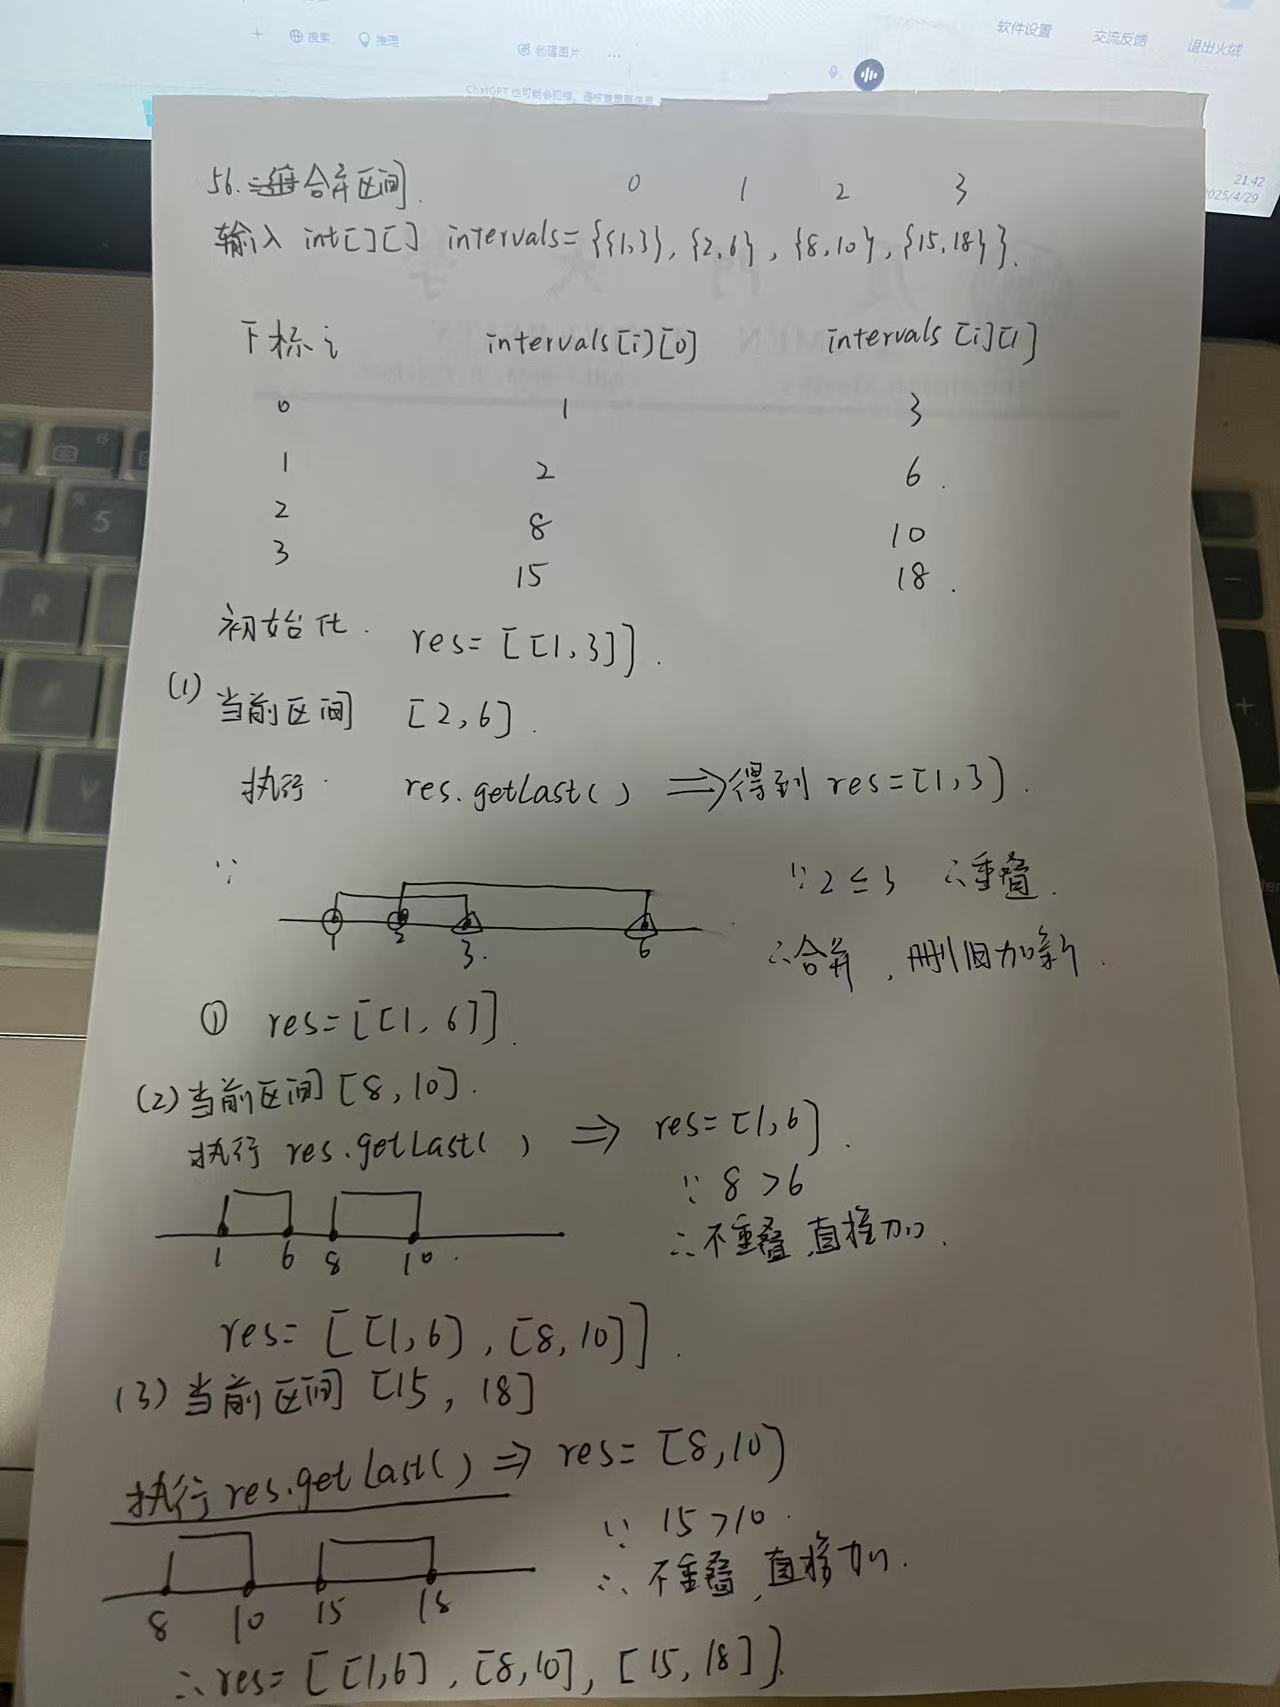 软件设置 交流反馈 退出火绒
+ 搜索 推理 创建图片 ...
ChatGPT 也可能会犯错。请核查重要信息
21:42
2025/4/29
56. 合并区间.
0 1 2 3
输入 int[][] intervals={{1,3},{2,6},{8,10},{15,18}}.
下标i intervals[i][0] intervals[i][1]
0 1 3
1 2 6.
2 8 10
3 15 18.
初始化. res=[[1,3]].
(1) 当前区间 [2,6].
执行. res.getLast() ⟹得到 res=[1,3].
∵
∵2≤3 ∴重叠.
1 2 3. 6
∴合并, 删旧加新.
① res=[[1,6]].
(2)当前区间[8,10].
执行 res.getLast() ⟹ res=[1,6].
∵ 8>6
∴不重叠,直接加.
1 6 8 10.
res=[[1,6],[8,10]].
(3)当前区间[15,18]
执行res.getLast()⟹ res=[8,10]
∵ 15>10.
∴ 不重叠,直接加.
8 10 15 18
∴res=[[1,6],[8,10],[15,18]].
5
R
F
V